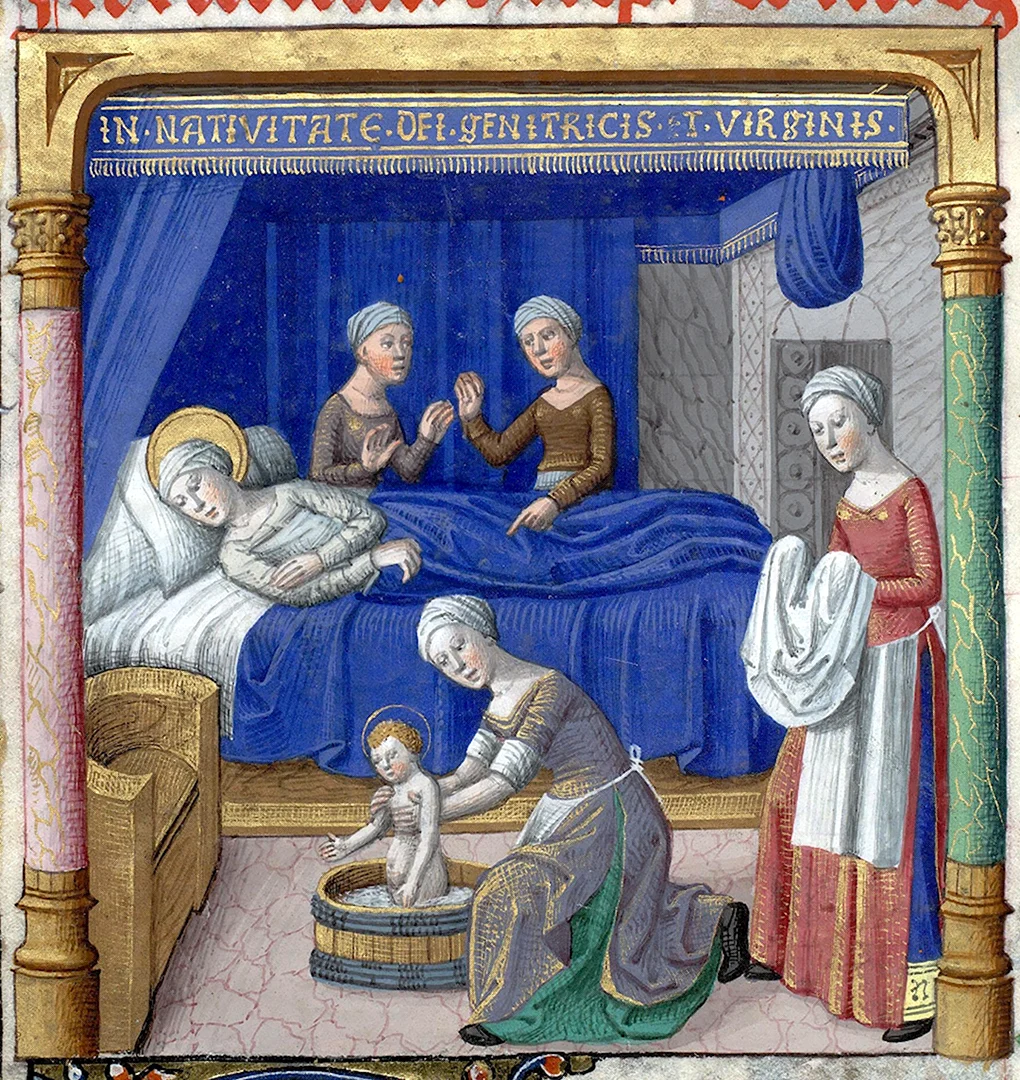 IN·NATIVITATE·DEI·GENITRICIS·ET·VIRGINIS·